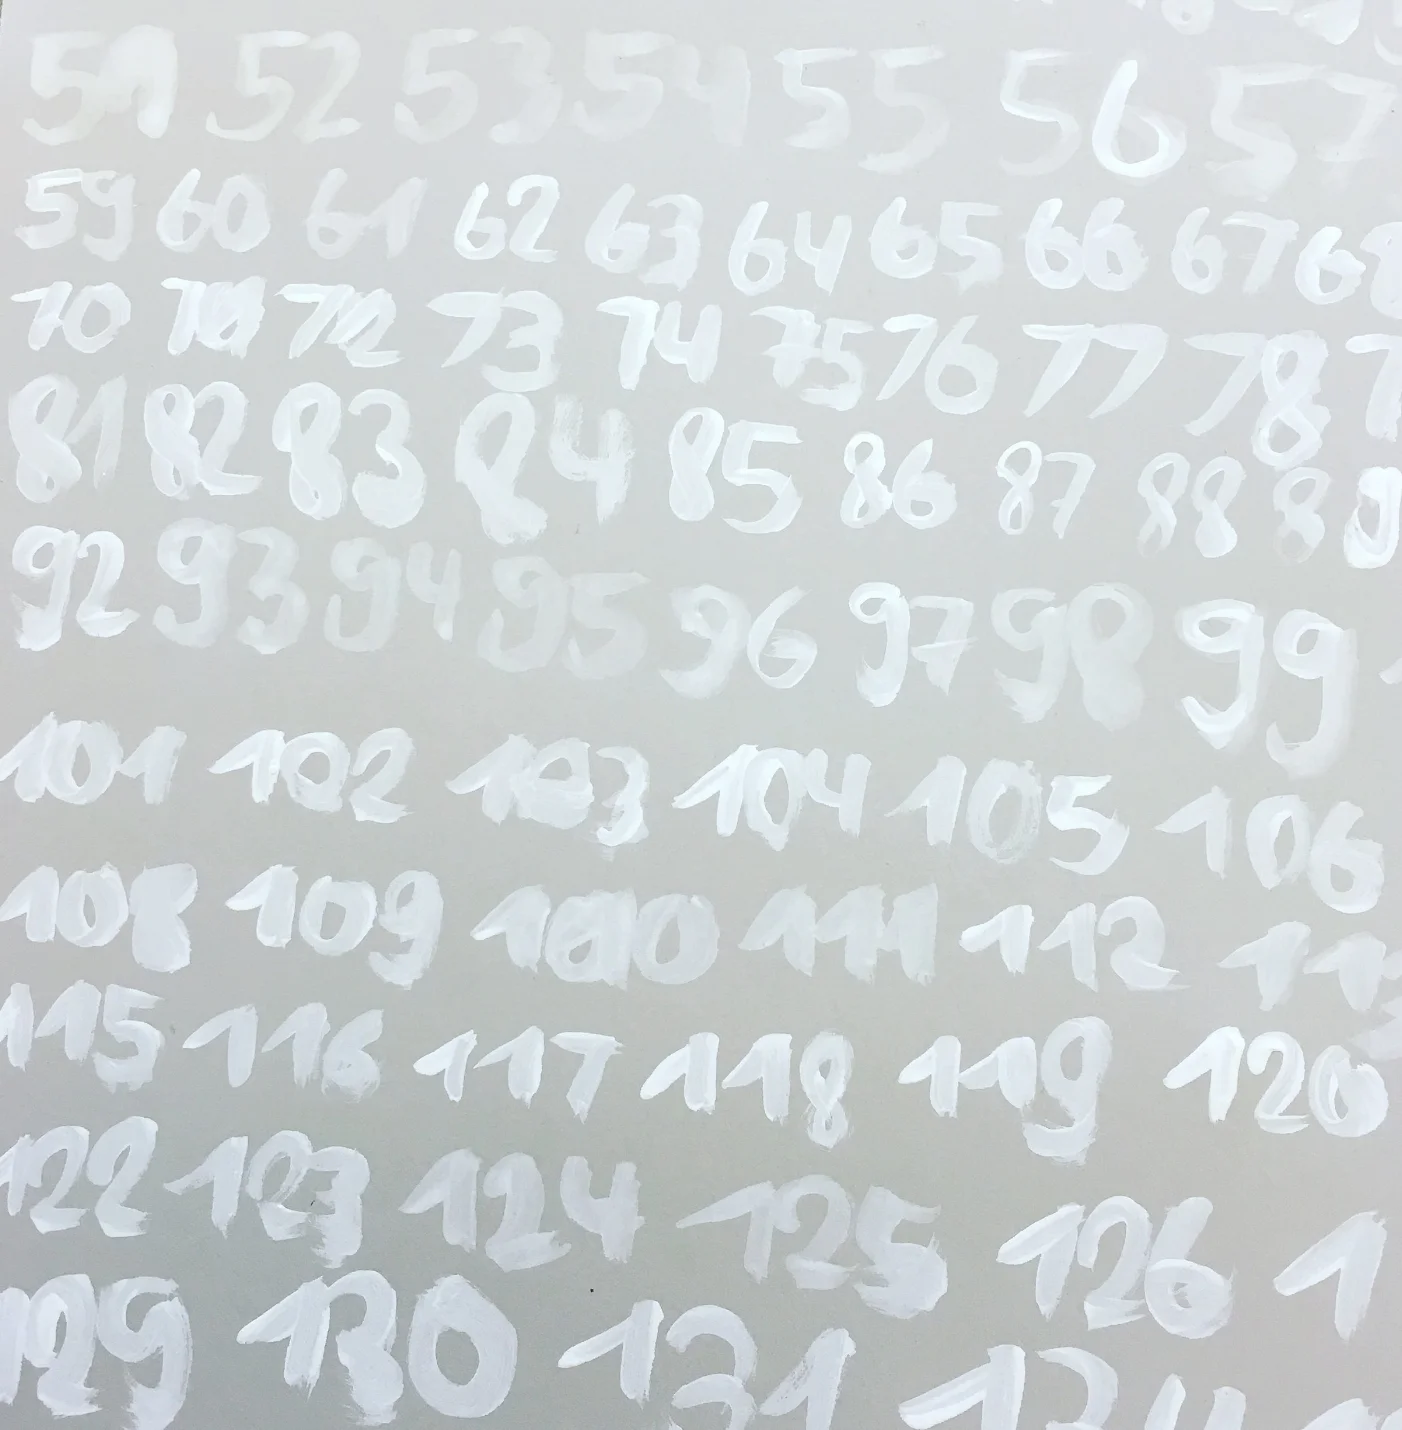 51 52 53 54 55 56 57
59 60 61 62 63 64 65 66 67 68
70 71 72 73 74 75 76 77 78
81 82 83 84 85 86 87 88 8
92 93 94 95 96 97 98 99
101 102 103 104 105 106
108 109 110 111 112 11
115 116 117 118 119 120
122 123 124 125 126 1
129 130 131 134